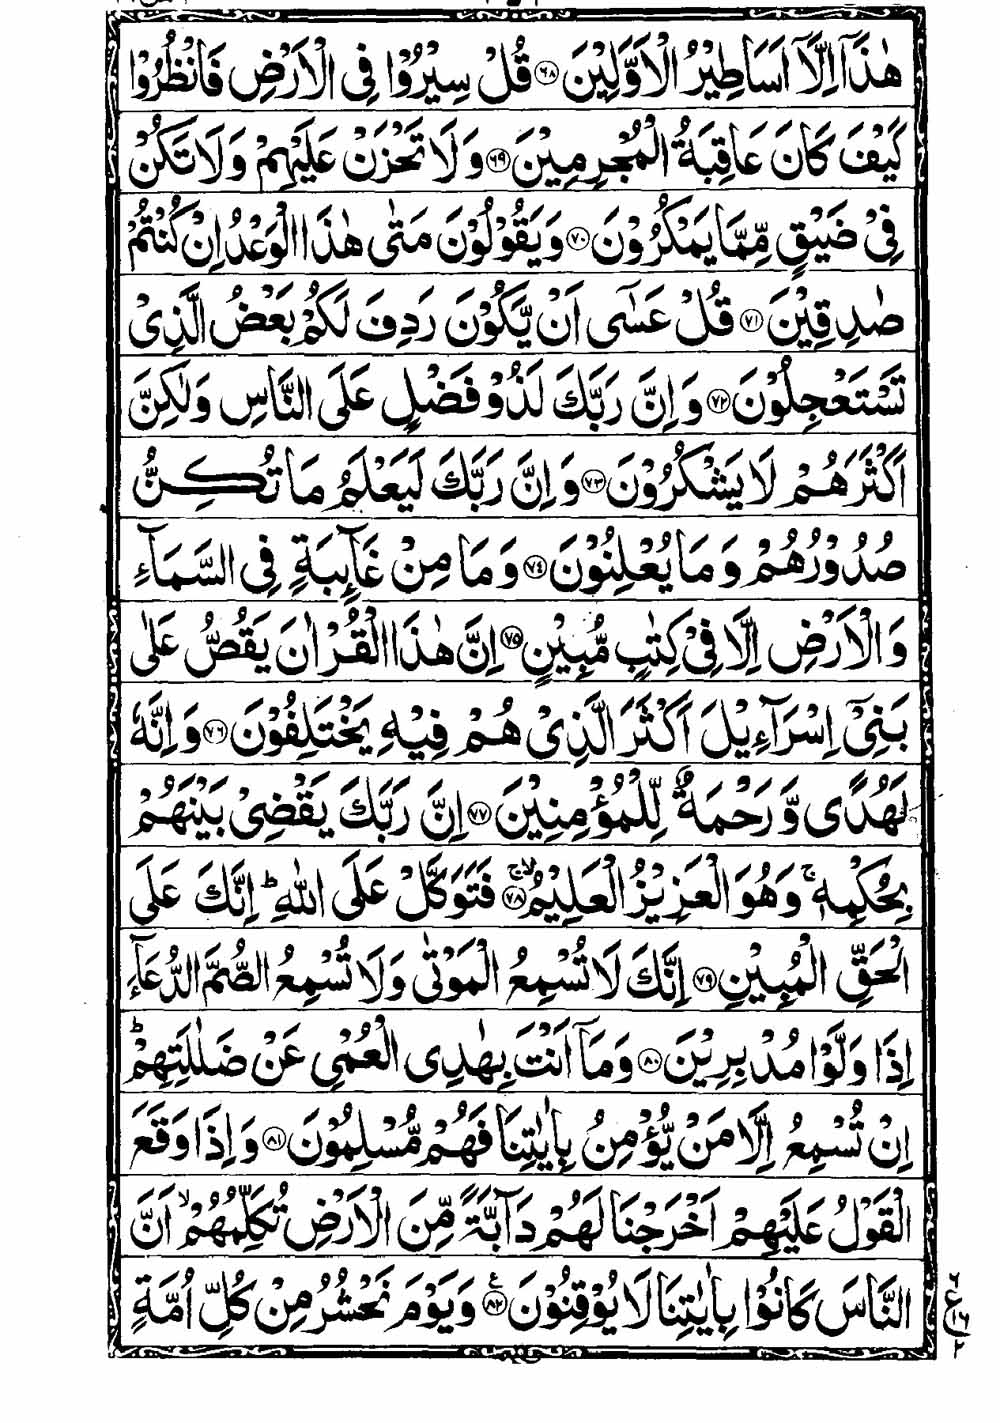 هٰذَاۤ اِلَّاۤ اَسَاطِیْرُ الْاَوَّلِیْنَ ﴿۶۸﴾ قُلْ سِیْرُوْا فِی الْاَرْضِ فَانْظُرُوْا
كَیْفَ كَانَ عَاقِبَةُ الْمُجْرِمِیْنَ ﴿۶۹﴾ وَ لَا تَحْزَنْ عَلَیْهِمْ وَ لَا تَكُنْ
فِیْ ضَیْقٍ مِّمَّا یَمْكُرُوْنَ ﴿۷۰﴾ وَ یَقُوْلُوْنَ مَتٰى هٰذَا الْوَعْدُ اِنْ كُنْتُمْ
صٰدِقِیْنَ ﴿۷۱﴾ قُلْ عَسٰۤى اَنْ یَّكُوْنَ رَدِفَ لَكُمْ بَعْضُ الَّذِیْ
تَسْتَعْجِلُوْنَ ﴿۷۲﴾ وَ اِنَّ رَبَّكَ لَذُوْ فَضْلٍ عَلَى النَّاسِ وَ لٰكِنَّ
اَكْثَرَهُمْ لَا یَشْكُرُوْنَ ﴿۷۳﴾ وَ اِنَّ رَبَّكَ لَیَعْلَمُ مَا تُكِنُّ
صُدُوْرُهُمْ وَ مَا یُعْلِنُوْنَ ﴿۷۴﴾ وَ مَا مِنْ غَآىِٕبَةٍ فِی السَّمَآءِ
وَ الْاَرْضِ اِلَّا فِیْ كِتٰبٍ مُّبِیْنٍ ﴿۷۵﴾ اِنَّ هٰذَا الْقُرْاٰنَ یَقُصُّ عَلٰى
بَنِیْۤ اِسْرَآءِیْلَ اَكْثَرَ الَّذِیْ هُمْ فِیْهِ یَخْتَلِفُوْنَ ﴿۷۶﴾ وَ اِنَّهٗ
لَهُدًى وَّ رَحْمَةٌ لِّلْمُؤْمِنِیْنَ ﴿۷۷﴾ اِنَّ رَبَّكَ یَقْضِیْ بَیْنَهُمْ
بِحُكْمِهٖ ۚ وَ هُوَ الْعَزِیْزُ الْعَلِیْمُ ﴿۷۸﴾ فَتَوَكَّلْ عَلَى اللّٰهِ ؕ اِنَّكَ عَلَى
الْحَقِّ الْمُبِیْنِ ﴿۷۹﴾ اِنَّكَ لَا تُسْمِعُ الْمَوْتٰى وَ لَا تُسْمِعُ الصُّمَّ الدُّعَآءَ
اِذَا وَلَّوْا مُدْبِرِیْنَ ﴿۸۰﴾ وَ مَاۤ اَنْتَ بِهٰدِی الْعُمْیِ عَنْ ضَلٰلَتِهِمْ ؕ
اِنْ تُسْمِعُ اِلَّا مَنْ یُّؤْمِنُ بِاٰیٰتِنَا فَهُمْ مُّسْلِمُوْنَ ﴿۸۱﴾ وَ اِذَا وَقَعَ
الْقَوْلُ عَلَیْهِمْ اَخْرَجْنَا لَهُمْ دَآبَّةً مِّنَ الْاَرْضِ تُكَلِّمُهُمْ ۙ اَنَّ
النَّاسَ كَانُوْا بِاٰیٰتِنَا لَا یُوْقِنُوْنَ ﴿۸۲﴾ وَ یَوْمَ نَحْشُرُ مِنْ كُلِّ اُمَّةٍ